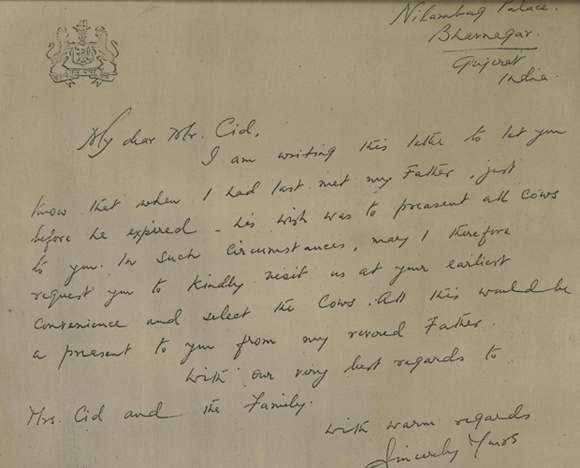 Nilambag Palace.
Bhavnagar.
Gujerat
India.
My dear Mr. Cid,
I am writing this letter to let you
know that when I had last met my Father, just
before he expired - his wish was to preasent all cows
to you. In such circumstances, may I therefore
request you to kindly visit us at your earliest
convenience and select the cows. All this would be
a present to you from my revored Father.
With our very best regards to
Mrs. Cid and the Family.
with warm regards
Sincerely Yours